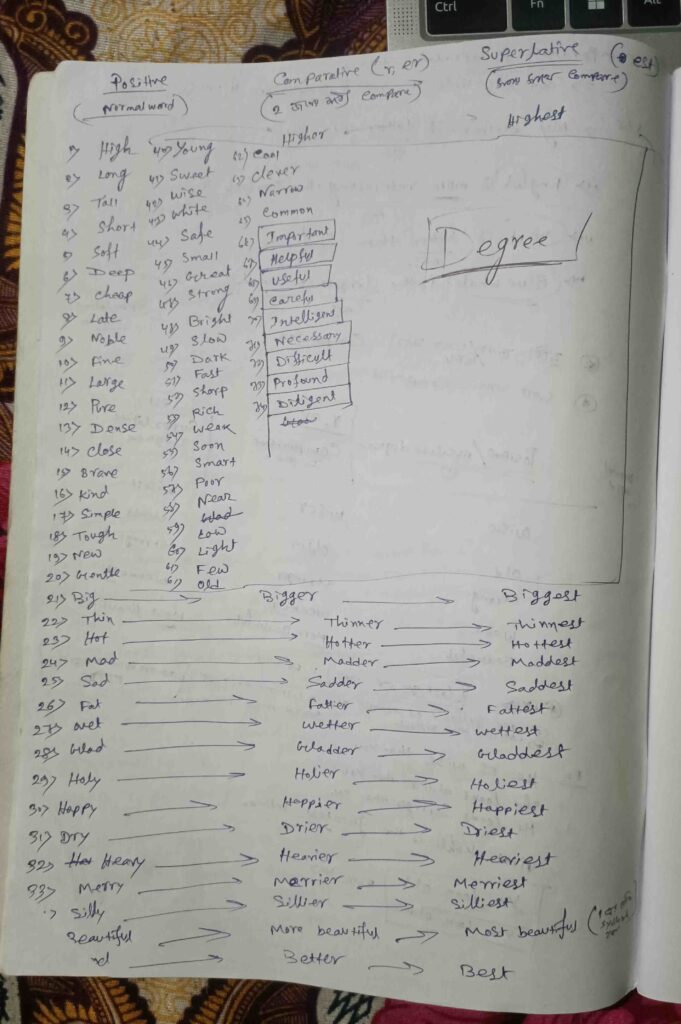 Ctrl
Fn
Alt
Positive
Comparative (r, er)
Superlative (est)
(Normal word)
(2 জনের মধ্যে Compare)
Compare)
Higher
Highest
Degree
1) High
2) Long
3) Tall
4) Short
5) Soft
6) Deep
7) Cheap
8) Late
9) Noble
10) Fine
11) Large
12) Pure
13) Dense
14) Close
15) Brave
16) Kind
17) Simple
18) Tough
19) New
20) Gentle
40) Young
41) Sweet
42) Wise
43) White
44) Safe
45) Small
46) Great
47) Strong
48) Bright
49) Slow
50) Dark
51) Fast
52) Sharp
53) Rich
54) Weak
55) Soon
56) Smart
57) Poor
58) Near
Glad
59) Low
60) Light
61) Few
61) Old
62) Cool
Clever
Narrow
Common
Important
Helpful
Useful
Careful
Intelligent
Necessary
Difficult
Profound
Diligent
21) Big Bigger Biggest
22) Thin Thinner Thinnest
23) Hot Hotter Hottest
24) Mad Madder Maddest
25) Sad Sadder Saddest
26) Fat Fatter Fattest
27) Wet Wetter Wettest
28) Glad Gladder Gladdest
29) Holy Holier Holiest
30) Happy Happier Happiest
31) Dry Drier Driest
32) Heavy Heavier Heaviest
33) Merry Merrier Merriest
Silly Sillier Silliest
Beautiful More beautiful Most beautiful
Better Best